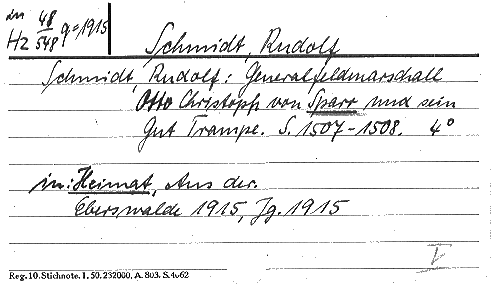 in
Hz 48/548 q=1915
Schmidt, Rudolf
Schmidt, Rudolf: Generalfeldmarschall
Otto Christoph von Sparr und sein
Gut Trampe. S. 1507-1508. 4°
in: Heimat, Aus der.
Eberswalde 1915, Jg. 1915
I
Reg. 10. Stichnote. 1. 50. 232000. A. 803. S. 4062